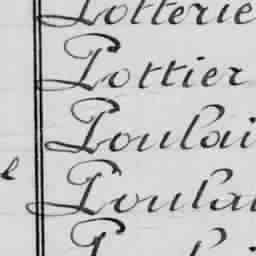 Potterie
Pottier
Poulai
Poula